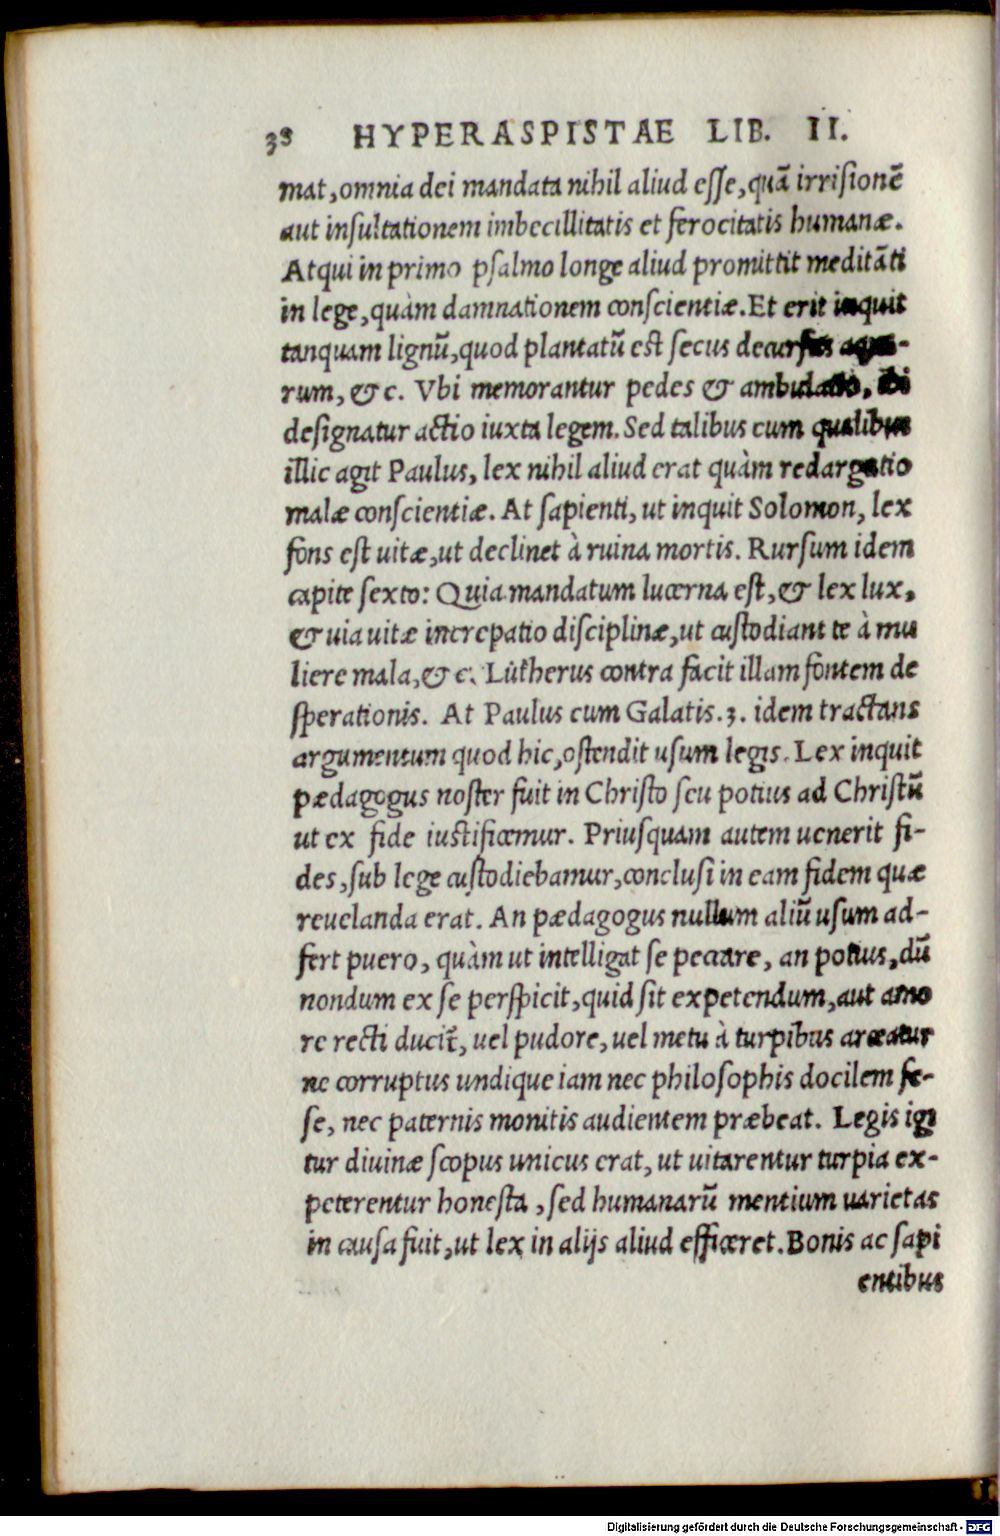 38 HYPERASPISTAE LIB. II.
mat, omnia dei mandata nihil aliud esse, quã irrisionẽ
aut insultationem imbecillitatis et ferocitatis humanæ.
Atqui in primo psalmo longe aliud promittit meditãti
in lege, quàm damnationem conscientiæ. Et erit inquit
tanquam lignũ, quod plantatũ est secus decursus aqua-
rum, & c. Vbi memorantur pedes & ambulatio, ibi
designatur actio iuxta legem. Sed talibus cum qualibus
illic agit Paulus, lex nihil aliud erat quàm redargutio
malæ conscientiæ. At sapienti, ut inquit Solomon, lex
fons est uitæ, ut declinet à ruina mortis. Rursum idem
capite sexto: Quia mandatum lucerna est, & lex lux,
& uia uitæ increpatio disciplinæ, ut custodiant te à mu
liere mala, & c. Lutherus contra facit illam fontem de
sperationis. At Paulus cum Galatis. 3. idem tractans
argumentum quod hic, ostendit usum legis. Lex inquit
pædagogus noster fuit in Christo seu potius ad Christũ
ut ex fide iustificemur. Priusquam autem uenerit fi-
des, sub lege custodiebamur, conclusi in eam fidem quæ
reuelanda erat. An pædagogus nullum aliũ usum ad-
fert puero, quàm ut intelligat se peccare, an potius, dũ
nondum ex se perspicit, quid sit expetendum, aut amo
re recti ducit̃, uel pudore, uel metu à turpibus arceatur
ne corruptus undique iam nec philosophis docilem se-
se, nec paternis monitis audientem præbeat. Legis igi
tur diuinæ scopus unicus erat, ut uitarentur turpia ex-
peterentur honesta, sed humanarũ mentium uarietas
in causa fuit, ut lex in alijs aliud efficeret. Bonis ac sapi
entibus
Digitalisierung gefördert durch die Deutsche Forschungsgemeinschaft - DFG